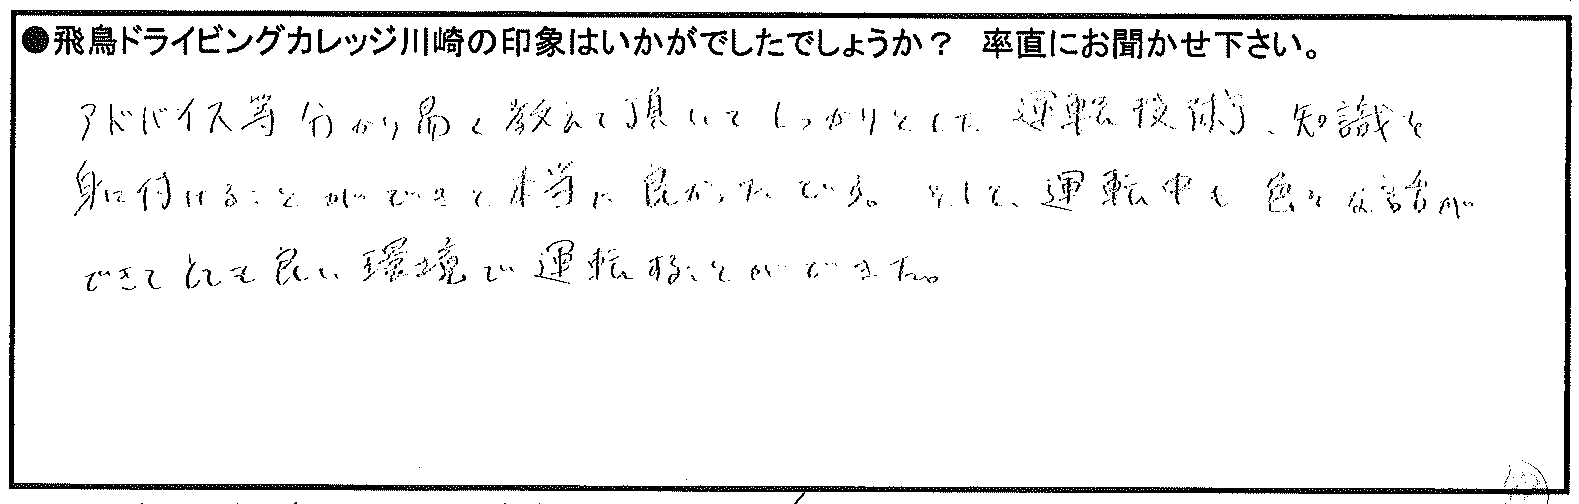 ●飛鳥ドライビングカレッジ川崎の印象はいかがでしたでしょうか？ 率直にお聞かせ下さい。
アドバイス等分かり易く教えて頂いてしっかりとした運転技術、知識を
身に付けることができて本当に良かったです。そして、運転中も色々な話が
できてとても良い環境で運転することができた。